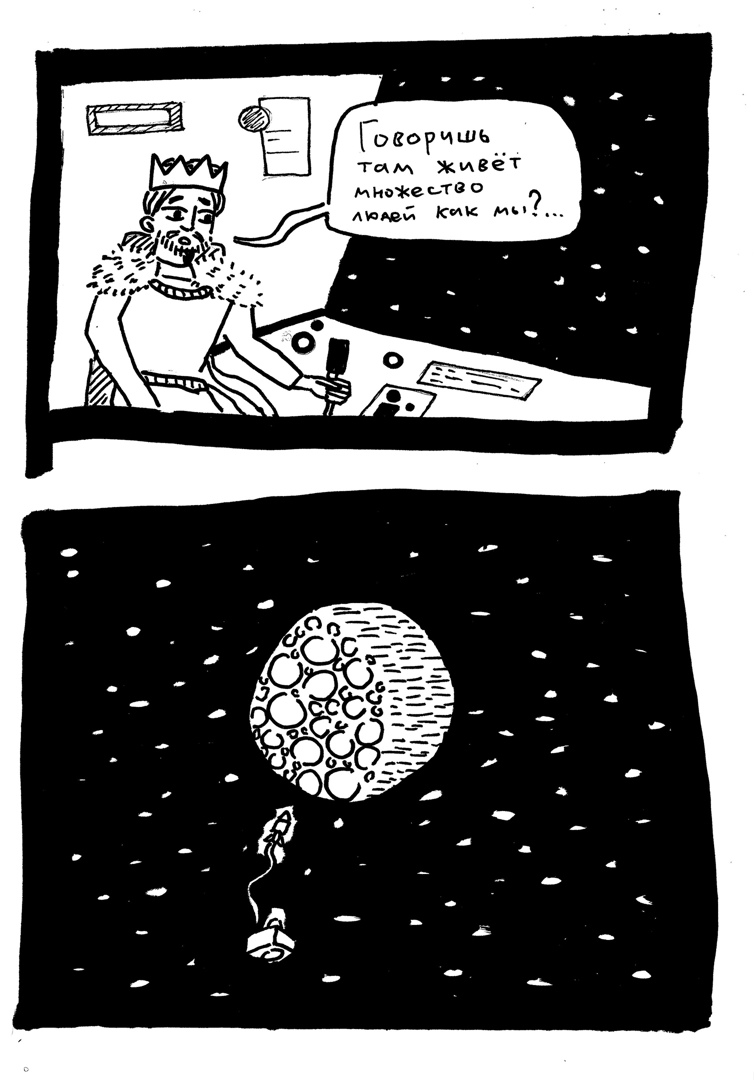 Говоришь
там живёт
множество
людей как мы?...